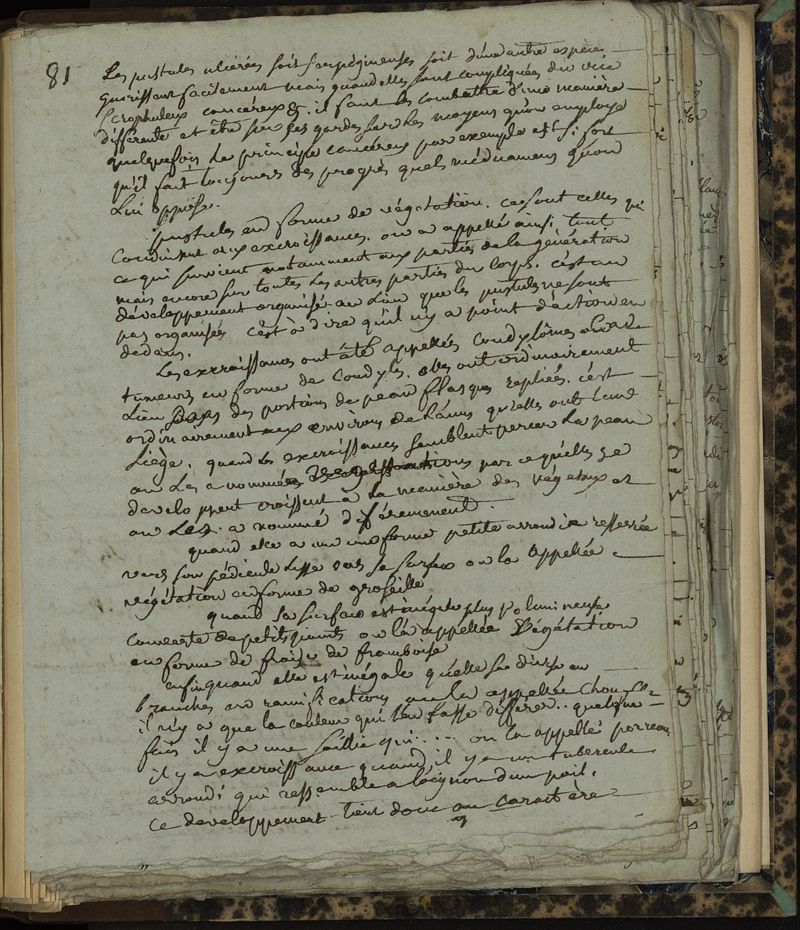 81
Les pustules ulcérées soit serpigineuses soit d'une autre espèce
guérissent facilement mais quand elles sont compliquées du vice
scrophuleux cancereux &c il faut les combattre d'une manière
différente et être sur ses gardes sur les moyens qu'on employe
quelquefois le principe cancereux par exemple est si fort
qu'il fait toujours des progrès quels médicamens qu'on
lui oppose.
pustules en forme de végétation. ce sont celles qui
conduisent aux excroissances. on a appellé ainsi tout
ce qui survient notamment aux parties de la génération
mais encore sur toutes les autres parties du corps. c'est un
développement organisé au lieu que les pustules ne sont
pas organisées c'est à dire qu'il n'y a point d'action en
dedans.
Les excroissances ont été appellées Condylômes
tumeurs en forme de Condyles. elles ont ordinairement
lieu des portions de peau flasques repliées. c'est
ordinairement aux environs de l'anus qu'elles ont leur
siège. quand les excroissances semblent percer la peau
on les a nommées végétations par ce qu'elles se
developpent croissent à la manière des végétaux et
on les a nommé différemment.
quand elle a une forme petite arrondie resserrée
vers son pédicule lisse vers sa surface on l'a appellée
végétation en forme de groseille
quand sa surface est inégale plus volumineuse
couverte de petits points on l'a appellée Végétation
en forme de fraise de framboise
enfin quand elle est inégale qu'elle se divise en
branches en ramifications on l'a appellée Chou-
il n'y a que la couleur qui les fasse differer. quelque
fois il y a une saillie qui..... on l'a appellé porreau
il y a excroissance quand il y a un tubercule
arrondi qui ressemble à l'oignon d'un poil.
ce developpement tient donc au caractère